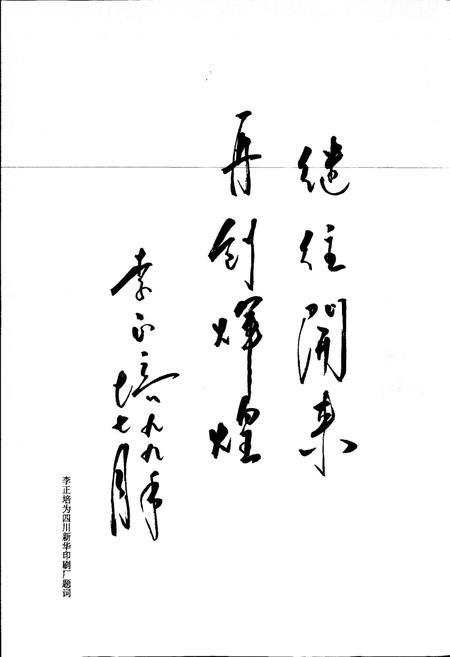 继往開来
再创辉煌
李正培
一九九九年
七月
李正培为四川新华印刷厂题词